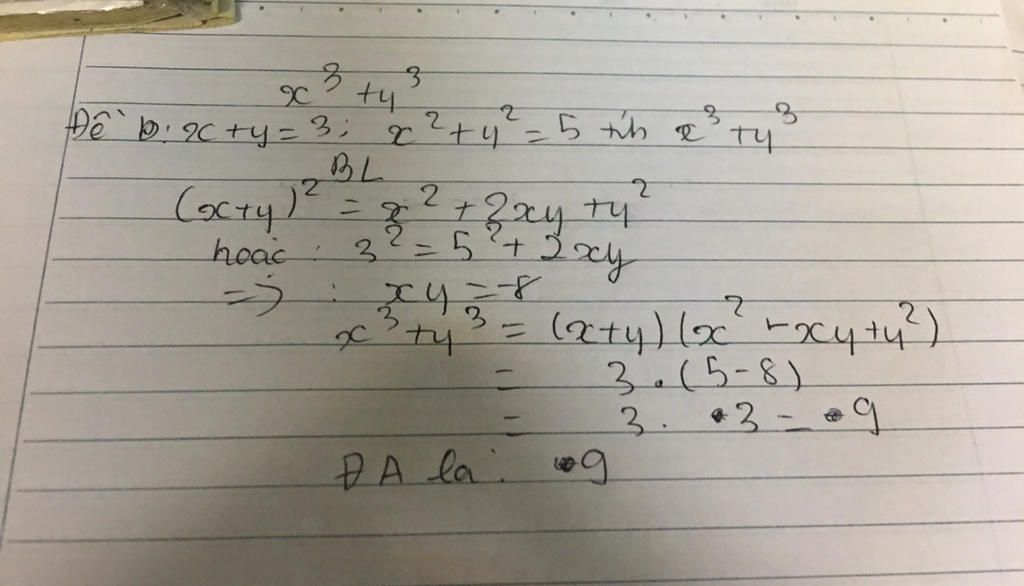 x³ + y³
Đề b: x + y = 3; x² + y² = 5 tính x³ + y³
BL
(x+y)² = x² + 2xy + y²
hoặc : 3² = 5² + 2xy
=> : xy = -8
x³ + y³ = (x+y)(x² - xy + y²)
= 3 . (5 - 8)
= 3 . 3 = 9
ĐA là : 9